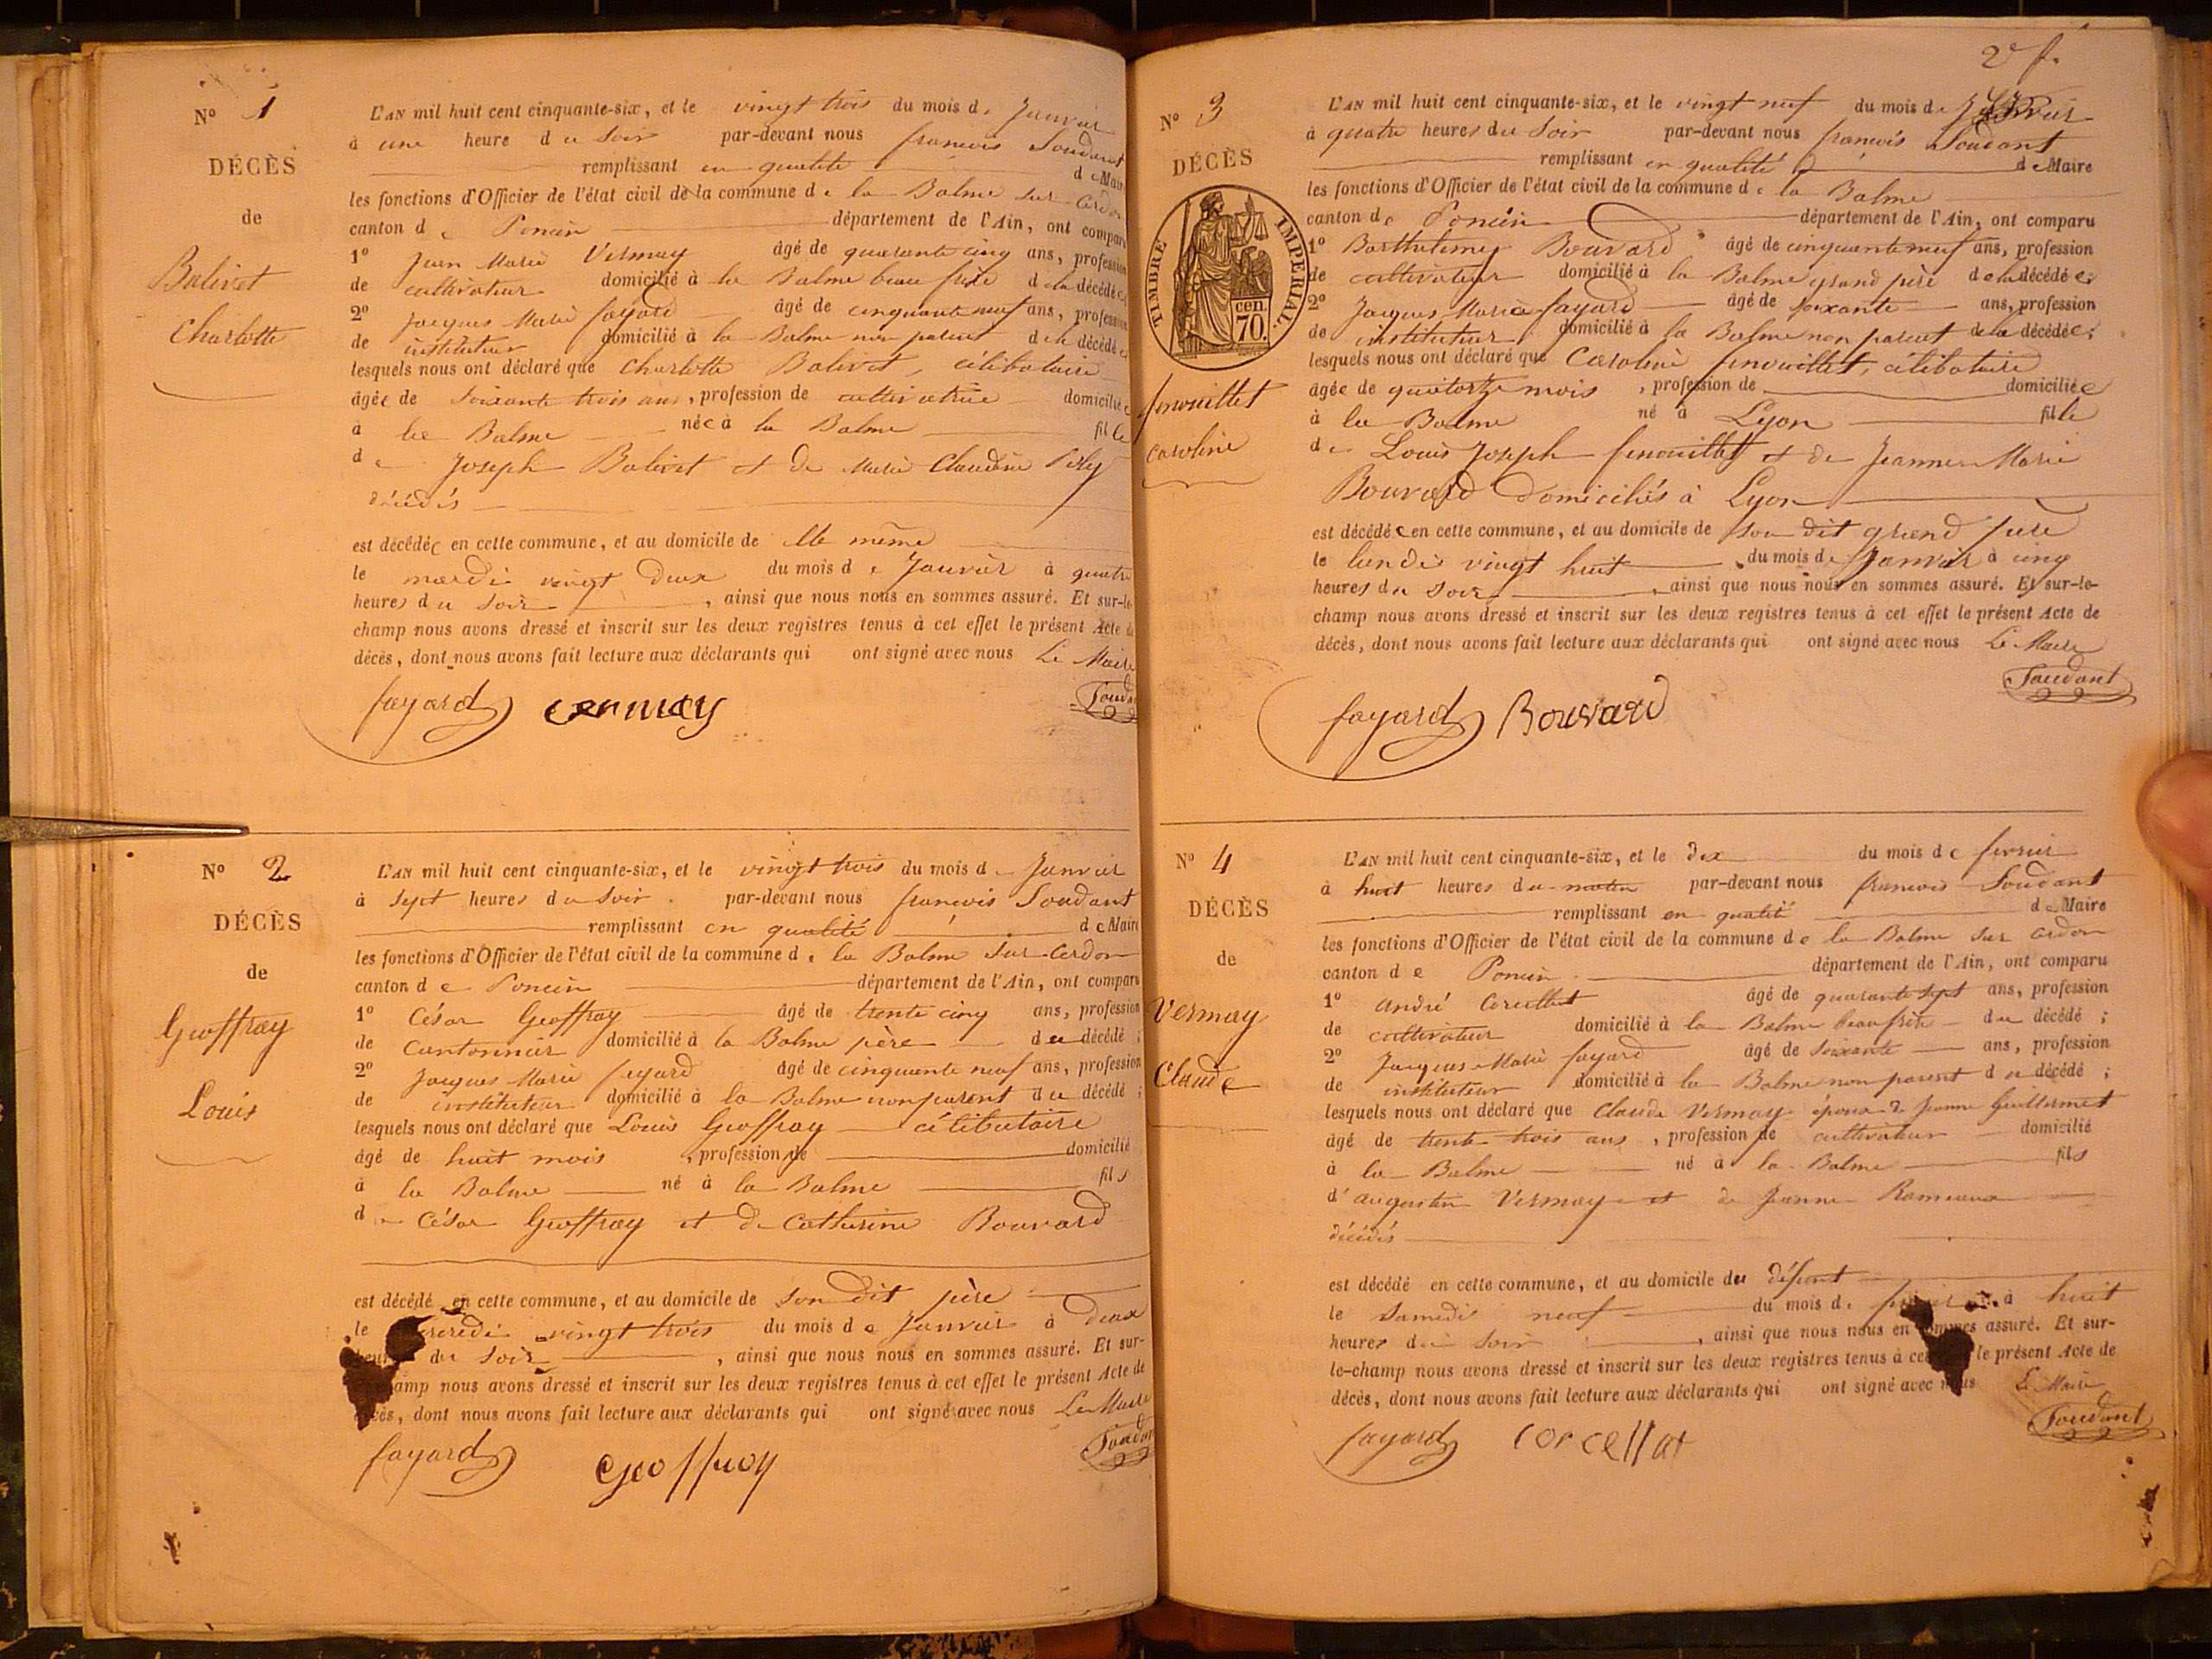 N° 1
DÉCÈS
de
Balivet
Charlotte
L'AN mil huit cent cinquante-six, et le vingt trois du mois de Janvier
à une heure du Soir par-devant nous francois Soudant
remplissant en qualité de Maire
les fonctions d'Officier de l'état civil de la commune de la Balme sur Cerdon
canton de Poncin département de l'Ain, ont comparu
1° Jean Marie Vermay âgé de quarante cinq ans, profession
de cultivateur domicilié à la Balme beau frère de la décédée
2° Jacques Marie fayard âgé de cinquante neuf ans, profession
de instituteur domicilié à la Balme non parent de la décédée
lesquels nous ont déclaré que Charlotte Balivet, célibataire
âgée de Soixante trois ans, profession de cultivatrice domiciliée
à la Balme née à la Balme fille
de Joseph Balivet et de Marie Claudine
décédés
est décédée en cette commune, et au domicile de elle même
le mardi vingt deux du mois de Janvier à quatre
heures du Soir, ainsi que nous nous en sommes assuré. Et sur-le-
champ nous avons dressé et inscrit sur les deux registres tenus à cet effet le présent Acte de
décès, dont nous avons fait lecture aux déclarants qui ont signé avec nous Le Maire
fayard vermay Soudant
N° 2
DÉCÈS
de
Geoffray
Louis
L'AN mil huit cent cinquante-six, et le vingt trois du mois de Janvier
à sept heures du Soir par-devant nous francois Soudant
remplissant en qualité de Maire
les fonctions d'Officier de l'état civil de la commune de la Balme sur Cerdon
canton de Poncin département de l'Ain, ont comparu
1° César Geoffray âgé de trente cinq ans, profession
de Cantonnier domicilié à la Balme père du décédé ;
2° Jacques Marie fayard âgé de cinquante neuf ans, profession
de instituteur domicilié à la Balme non parent du décédé ;
lesquels nous ont déclaré que Louis Geoffray célibataire
âgé de huit mois, profession de domicilié
à la Balme né à la Balme fils
de César Geoffray et de Catherine Bouvard
est décédé en cette commune, et au domicile de son dit père
le mercredi vingt trois du mois de Janvier à deux
heures du Soir, ainsi que nous nous en sommes assuré. Et sur-
le-champ nous avons dressé et inscrit sur les deux registres tenus à cet effet le présent Acte de
décès, dont nous avons fait lecture aux déclarants qui ont signé avec nous Le Maire
fayard Geoffray Soudant
2e f.
N° 3
DÉCÈS
TIMBRE IMPERIAL
70 cen.
fenouillet
Caroline
L'AN mil huit cent cinquante-six, et le vingt neuf du mois de Janvier
à quatre heures du Soir par-devant nous francois Soudant
remplissant en qualité de Maire
les fonctions d'Officier de l'état civil de la commune de la Balme
canton de Poncin département de l'Ain, ont comparu
1° Barthelemy Bouvard âgé de cinquante neuf ans, profession
de cultivateur domicilié à la Balme grand père de la décédée ;
2° Jacques Marie fayard âgé de soixante ans, profession
de instituteur domicilié à la Balme non parent de la décédée ;
lesquels nous ont déclaré que Caroline fenouillet, célibataire
âgée de quatorze mois, profession de domiciliée
à la Balme né à Lyon fille
de Louis Joseph fenouillet et de Jeanne Marie
Bouvard domiciliés à Lyon
est décédée en cette commune, et au domicile de son dit grand père
le lundi vingt huit du mois de Janvier à cinq
heures du soir, ainsi que nous nous en sommes assuré. Et sur-le-
champ nous avons dressé et inscrit sur les deux registres tenus à cet effet le présent Acte de
décès, dont nous avons fait lecture aux déclarants qui ont signé avec nous Le Maire
fayard Bouvard Soudant
N° 4
DÉCÈS
de
Vermay
Claude
L'AN mil huit cent cinquante-six, et le dix du mois de fevrier
à huit heures du matin par-devant nous francois Soudant
remplissant en qualité de Maire
les fonctions d'Officier de l'état civil de la commune de la Balme sur Cerdon
canton de Poncin département de l'Ain, ont comparu
1° André Corcellet âgé de quarante sept ans, profession
de cultivateur domicilié à la Balme beau frère du décédé ;
2° Jacques Marie fayard âgé de soixante ans, profession
de instituteur domicilié à la Balme non parent du décédé ;
lesquels nous ont déclaré que Claude Vermay époux de Jeanne Guillermet
âgé de trente trois ans, profession de cultivateur domicilié
à la Balme né à la Balme fils
d'augustin Vermay et de Jeanne Rameaux
décédés
est décédé en cette commune, et au domicile du défunt
le Samedi neuf du mois de à huit
heures du Soir, ainsi que nous nous en sommes assuré. Et sur-
le-champ nous avons dressé et inscrit sur les deux registres tenus à cet le présent Acte de
décès, dont nous avons fait lecture aux déclarants qui ont signé avec nous Le Maire
fayard corcellat Soudant